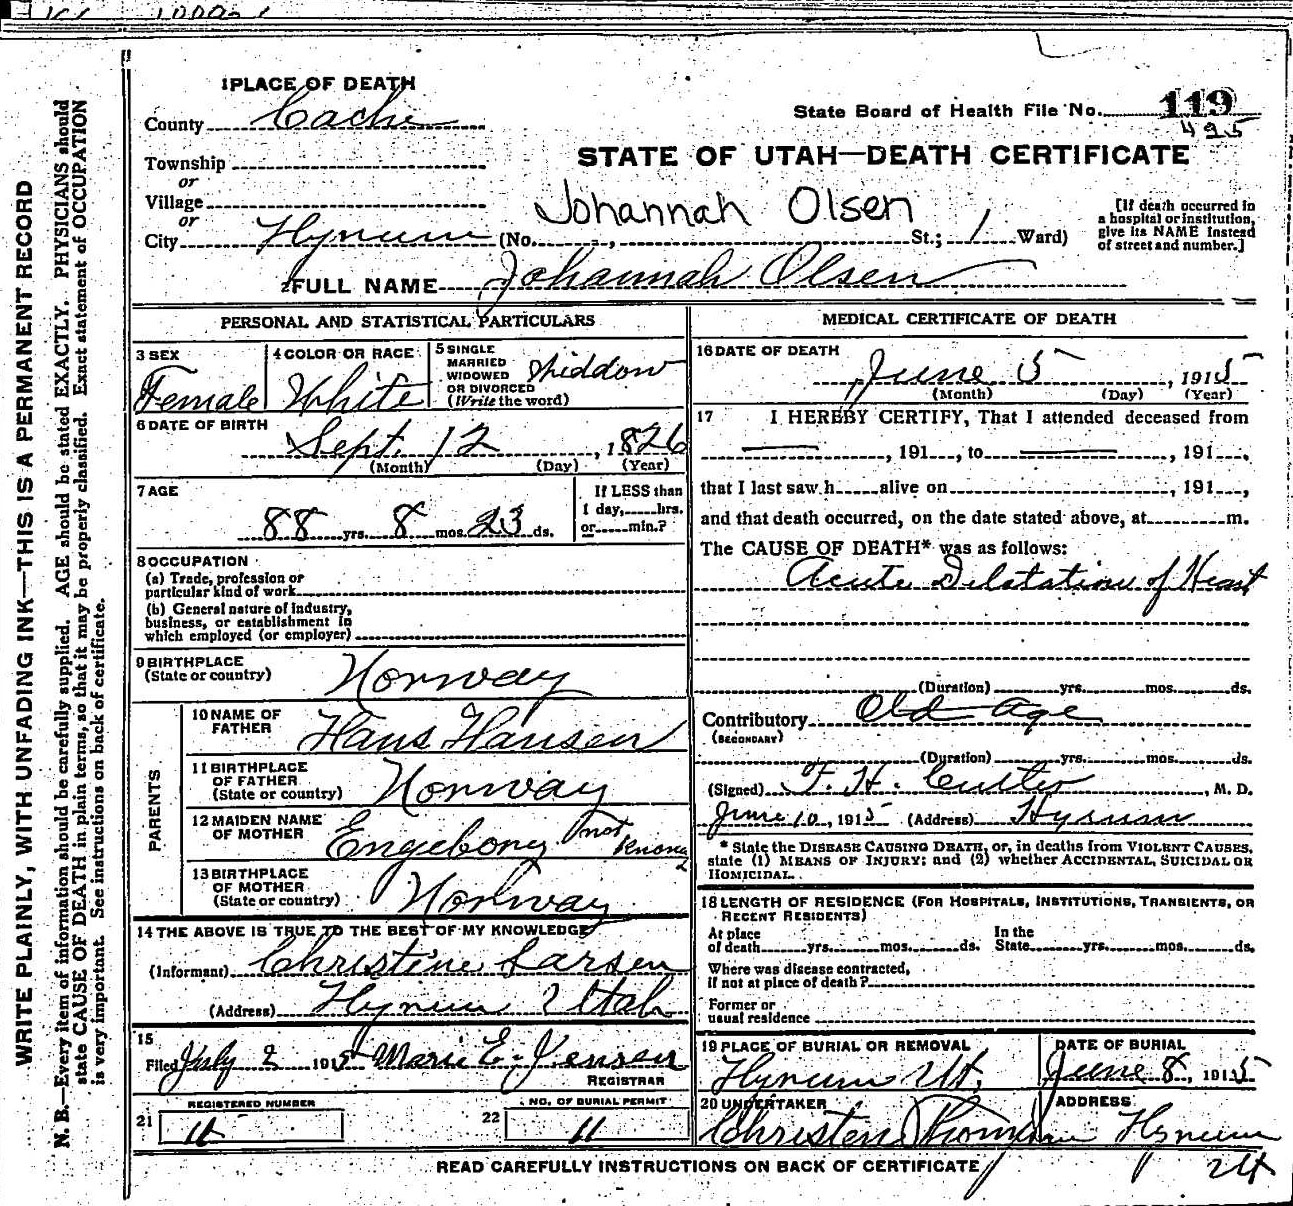 1 PLACE OF DEATH
County Cache
Township
or
Village
or
City Hyrum (No. St.; 1 Ward)
State Board of Health File No. 119
495
STATE OF UTAH—DEATH CERTIFICATE
Johannah Olsen
[If death occurred in
a hospital or institution,
give its NAME instead
of street and number.]
2 FULL NAME Johannah Olsen
PERSONAL AND STATISTICAL PARTICULARS
3 SEX
Female
4 COLOR OR RACE
White
5 SINGLE
MARRIED
WIDOWED
OR DIVORCED
(Write the word)
Widdow
6 DATE OF BIRTH
Sept. 12, 1826
(Month) (Day) (Year)
7 AGE
88 yrs. 8 mos. 23 ds.
If LESS than
1 day, hrs.
or min.?
8 OCCUPATION
(a) Trade, profession or
particular kind of work
(b) General nature of industry,
business, or establishment in
which employed (or employer)
9 BIRTHPLACE
(State or country)
Norway
PARENTS
10 NAME OF
FATHER
Hans Hansen
11 BIRTHPLACE
OF FATHER
(State or country)
Norway
12 MAIDEN NAME
OF MOTHER
Engebory not
Known
13 BIRTHPLACE
OF MOTHER
(State or country)
Norway
14 THE ABOVE IS TRUE TO THE BEST OF MY KNOWLEDGE
(Informant) Christine Larsen
(Address) Hyrum Utah
15
Filed July 2 1915 Marie E. Jensen
REGISTRAR
REGISTERED NUMBER
21 11
NO. OF BURIAL PERMIT
22 11
MEDICAL CERTIFICATE OF DEATH
16 DATE OF DEATH
June 5, 1915
(Month) (Day) (Year)
17 I HEREBY CERTIFY, That I attended deceased from
, 191 , to , 191 ,
that I last saw h alive on , 191 ,
and that death occurred, on the date stated above, at m.
The CAUSE OF DEATH* was as follows:
Acute Dilatation of Heart
(Duration) yrs. mos. ds.
Contributory Old age
(SECONDARY)
(Duration) yrs. mos. ds.
(Signed) , M. D.
June 10, 1915 (Address) Hyrum
* State the DISEASE CAUSING DEATH, or, in deaths from VIOLENT CAUSES,
state (1) MEANS OF INJURY; and (2) whether ACCIDENTAL, SUICIDAL OR
HOMICIDAL.
18 LENGTH OF RESIDENCE (FOR HOSPITALS, INSTITUTIONS, TRANSIENTS, OR
RECENT RESIDENTS)
At place
of death yrs. mos. ds.
In the
State yrs. mos. ds.
Where was disease contracted,
if not at place of death?
Former or
usual residence
19 PLACE OF BURIAL OR REMOVAL
Hyrum Ut.
DATE OF BURIAL
June 8, 1915
20 UNDERTAKER
Christen
ADDRESS
Hyrum
Ut
READ CAREFULLY INSTRUCTIONS ON BACK OF CERTIFICATE
WRITE PLAINLY, WITH UNFADING INK—THIS IS A PERMANENT RECORD
N. B.—Every item of information should be carefully supplied. AGE should be stated EXACTLY. PHYSICIANS should
state CAUSE OF DEATH in plain terms, so that it may be properly classified. Exact statement of OCCUPATION
is very important. See instructions on back of certificate.